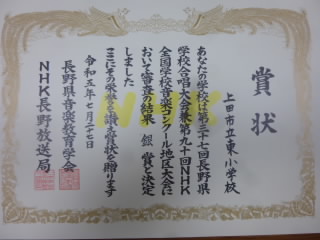 賞状
上田市立東小学校
あなたの学校は第三十七回長野県
学校合唱大会兼第九十回NHK
全国学校音楽コンクール地区大会に
おいて審査の結果 銀賞と決定
しました
ここにその栄誉を讃え賞状を贈ります
令和五年七月二十七日
長野県音楽教育学会
NHK長野放送局
NHK